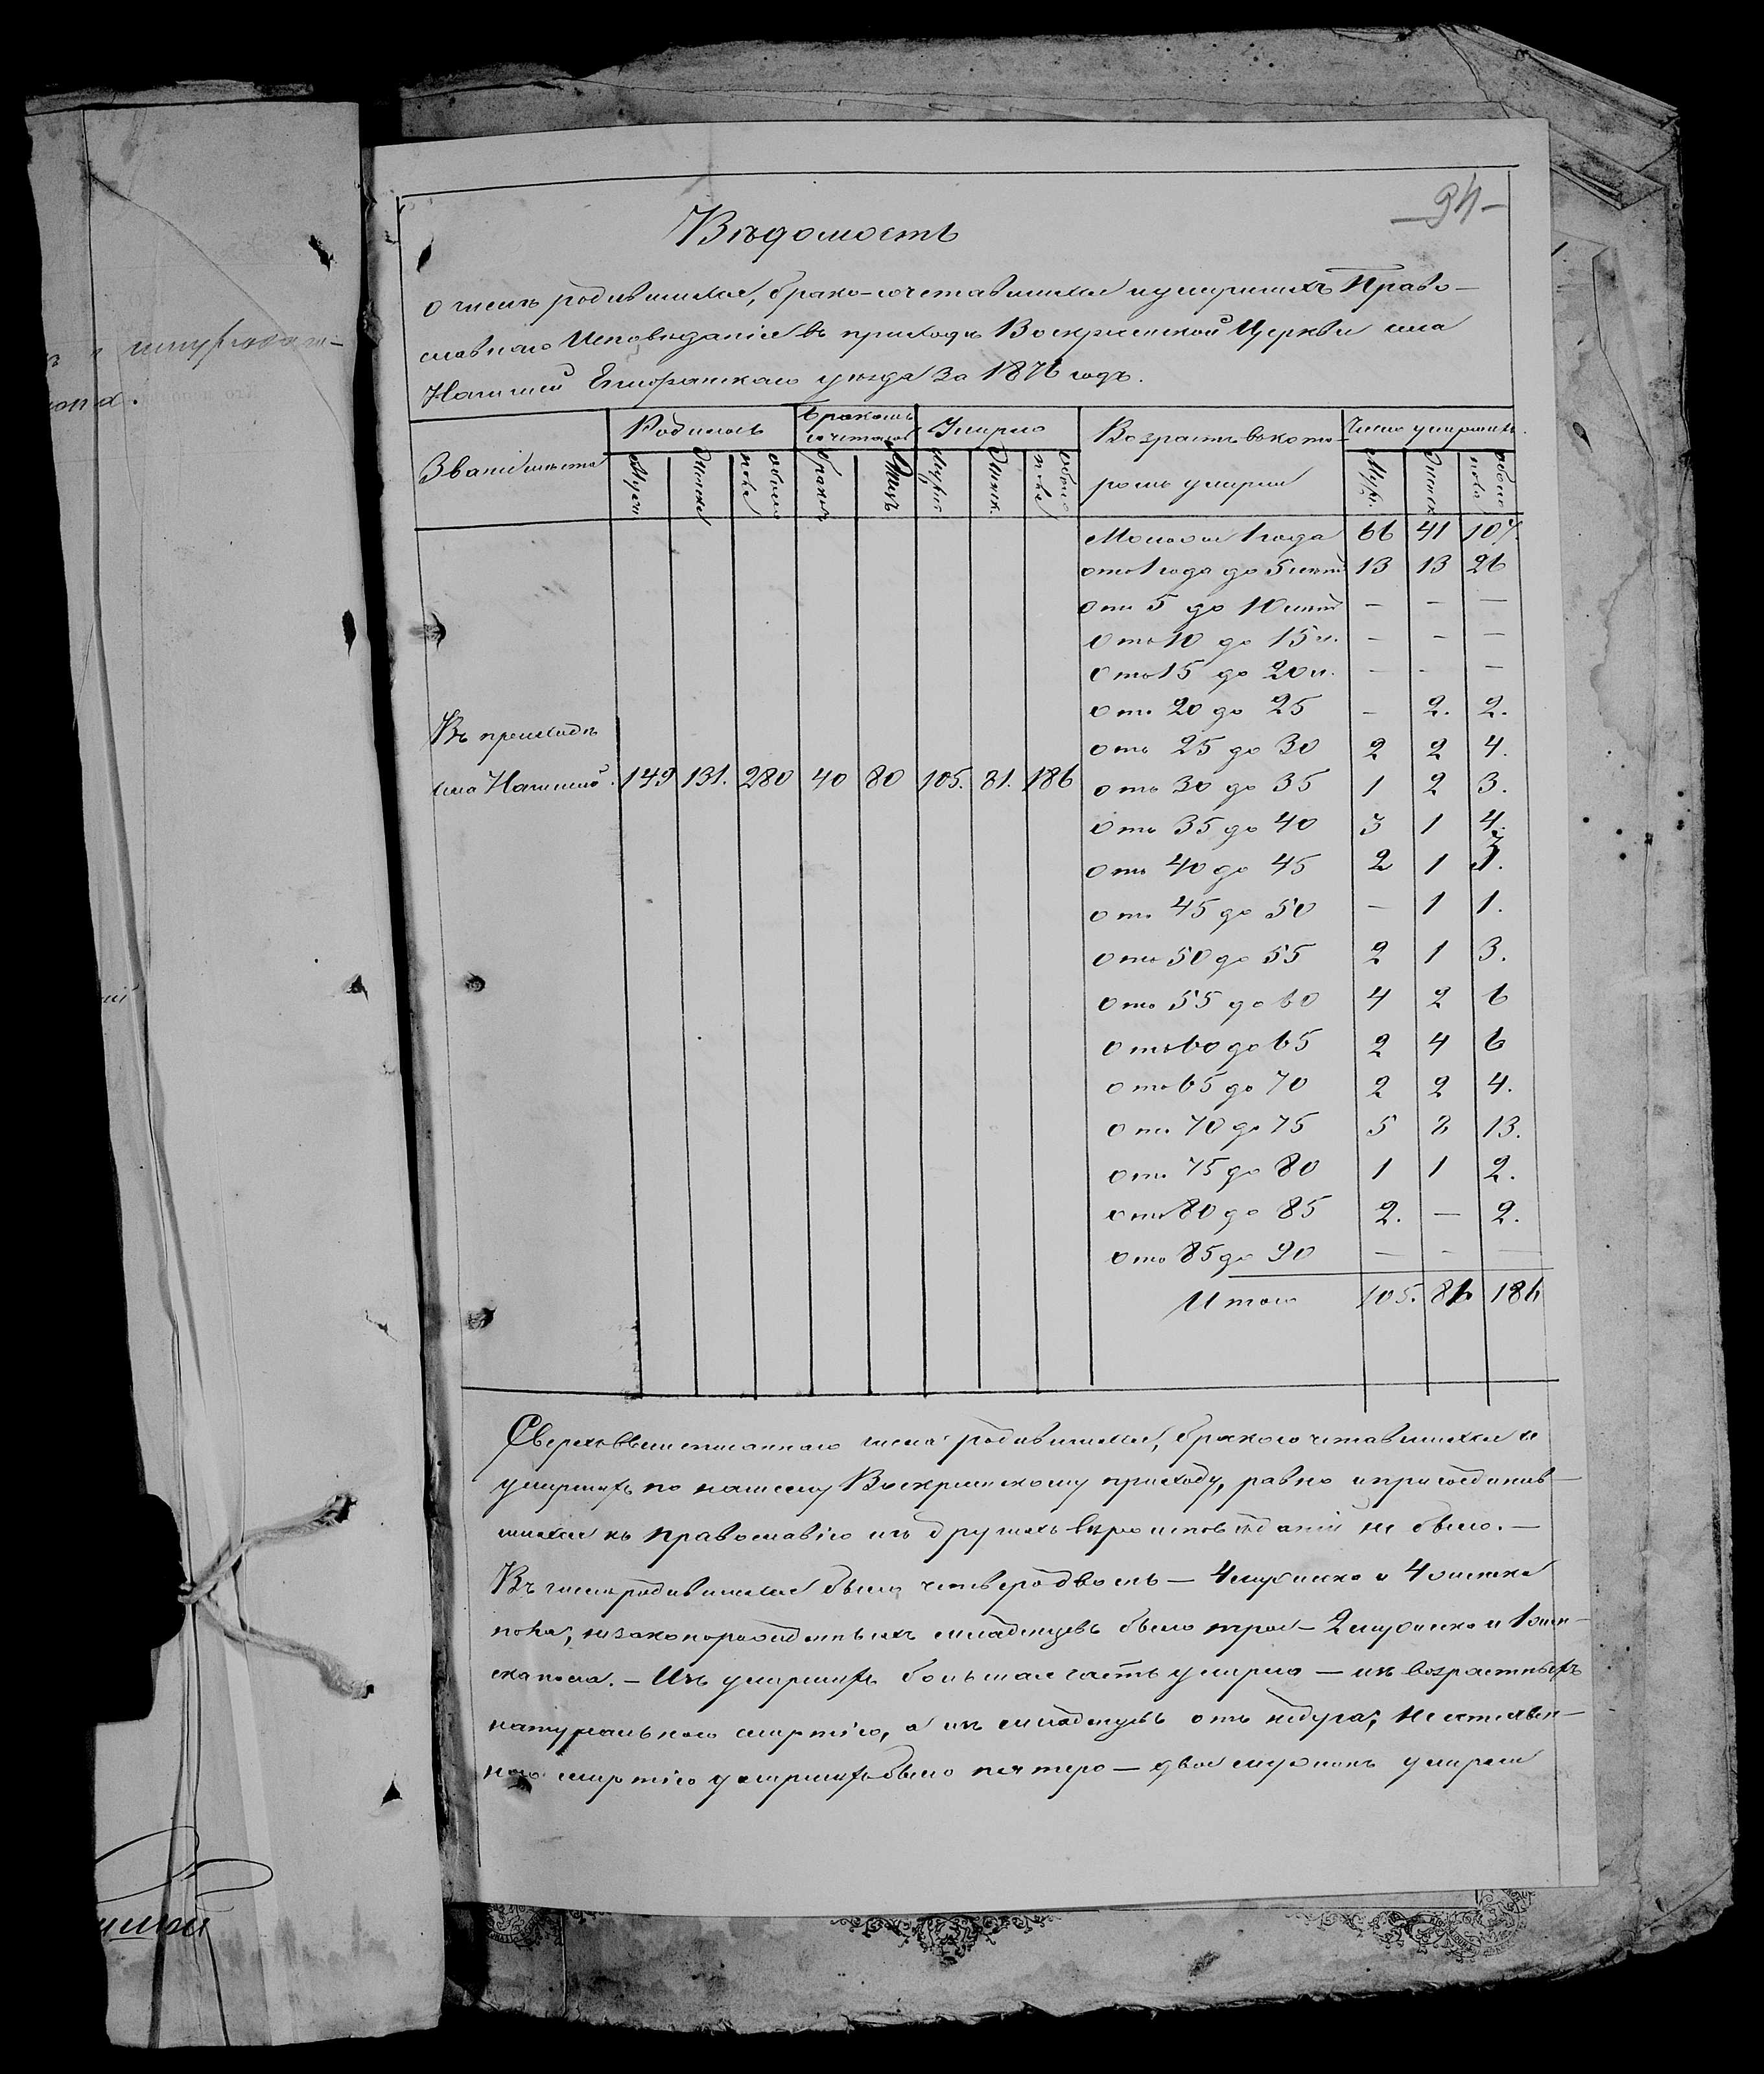 шнуровал-
-94-
Вѣдомость
о числѣ родившихся, брако-сочетавшихся и умершихъ Право-
славнаго Исповѣданія въ приходѣ Воскресенской Церкви села
уѣзда за 1876 годъ.
Званіе мѣста
Родилось
Бракомъ сочеталось
Умерло
Возрастъ въ кото-
ромъ умерли
Число умершихъ
Муж. Женска обоего пола браковъ лицъ мужес женск. обоего пола Муж. женск обоего пола
Моложе 1 года 66 41 107.
отъ 1 года до 5 лѣтъ 13 13 26
Отъ 5 до 10 лѣтъ — — —
Отъ 10 до 15 л. — — —
Отъ 15 до 20 л. — — —
Отъ 20 до 25 — 2. 2.
отъ 25 до 30 2 2 4.
Въ приходѣ
села 149 131. 280 40 80 105. 81. 186
отъ 30 до 35 1 2 3.
Отъ 35 до 40 3 1 4.
Отъ 40 до 45 2 1 3.
отъ 45 до 50 — 1 1.
Отъ 50 до 55 2 1 3.
Отъ 55 до 60 4 2 6
Отъ 60 до 65 2 4 6
Отъ 65 до 70 2 2 4.
Отъ 70 до 75 5 8 13.
Отъ 75 до 80 1 1 2.
Отъ 80 до 85 2. — 2.
Отъ 85 до 90 — — —
Итого 105. 81 186
Сверхъ вышеписаннаго числа родившихся, бракосочетавшихся и
умершихъ по нашему Воскресенскому приходу, равно и присоединив-
шихся къ Православію изъ другихъ вѣроисповѣданій не было. —
Въ числѣ родившихся было четверо двоень — 4 мужеска и 4 женска
пола, незаконорожденныхъ младенцевъ было трое — 2 мужеска и 1 жен-
ска пола. — Изъ умершихъ большая часть умерло — изъ возрастныхъ
натуральною смертію, а изъ младенцевъ отъ недуга; неестествен-
ною смертію умершихъ было пятеро — двое мужчинъ умерли